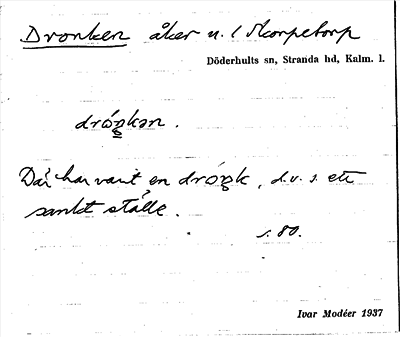 Dronken åker u. l Skorpetorp
Döderhults sn, Stranda hd, Kalm. l.
dróŋkən.
Där har varit en dróŋk, d.v.s. ett
sankt ställe.
s. 80.
Ivar Modéer 1937